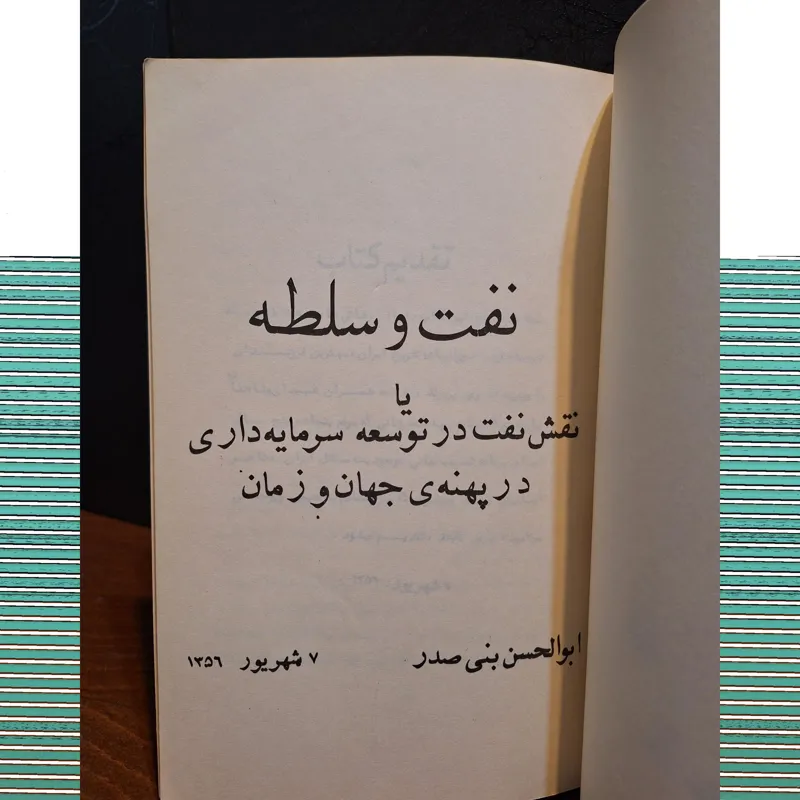 نفت و سلطه
یا
نقش نفت در توسعه سرمایه‌داری
در پهنه‌ی جهان و زمان
ابوالحسن بنی صدر
۷ شهریور ۱۳۵۶